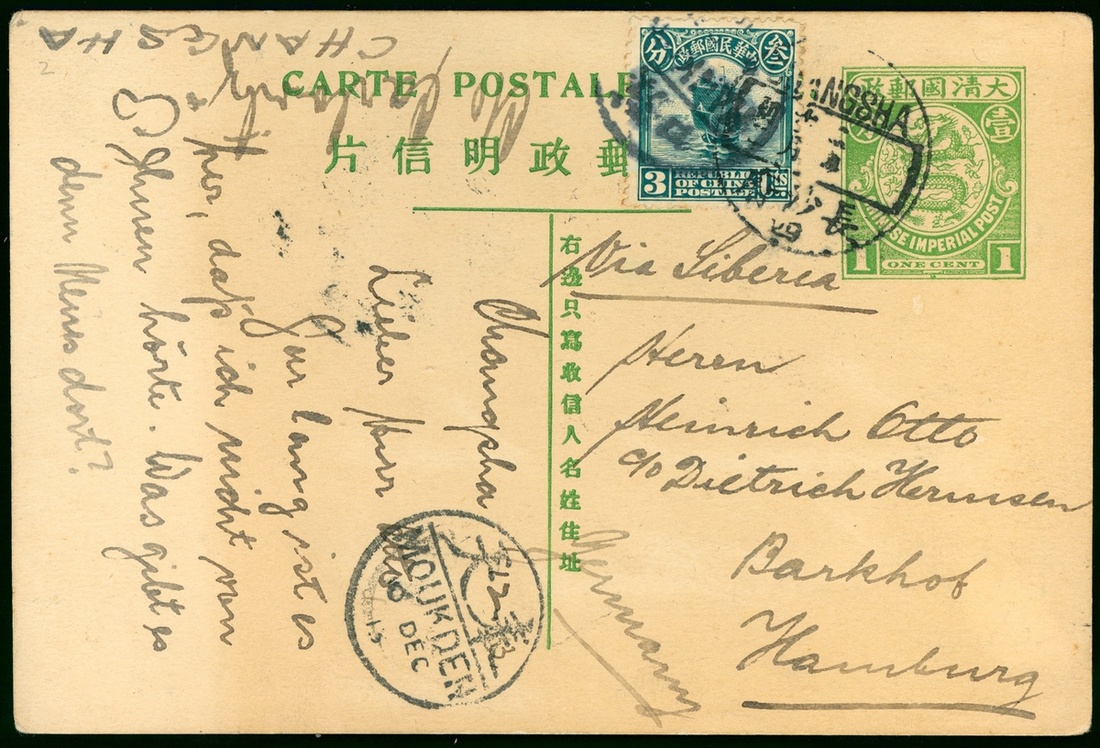 CARTE POSTALE
片信明政郵
大清國郵政
壹
分
CHINESE IMPERIAL POST
1 ONE CENT 1
中華民國郵政
分 叁
3 REPUBLIC OF CHINA POSTAGE CTS
CHANGSHA
長沙
Via Siberia
Herrn
Heinrich Otto
c/o Dietrich Hermsen
Barkhof
Hamburg
Germany
右邊只寫收信人名姓住址
Changsha
Lieber Herr Otto
Gar lang ist es
her, daß ich nicht von
Ihnen hörte. Was gibt es
denn Neues dort?
CHANGSHA
MOUKDEN
8 DEC